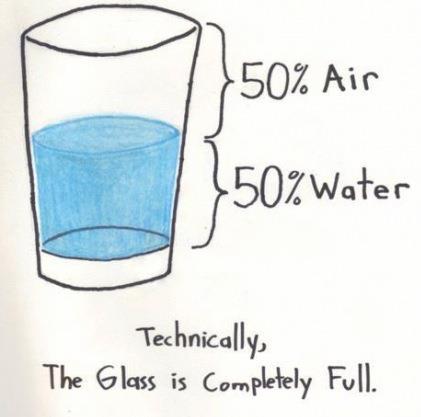 50% Air
50% Water
Technically,
The Glass is Completely Full.